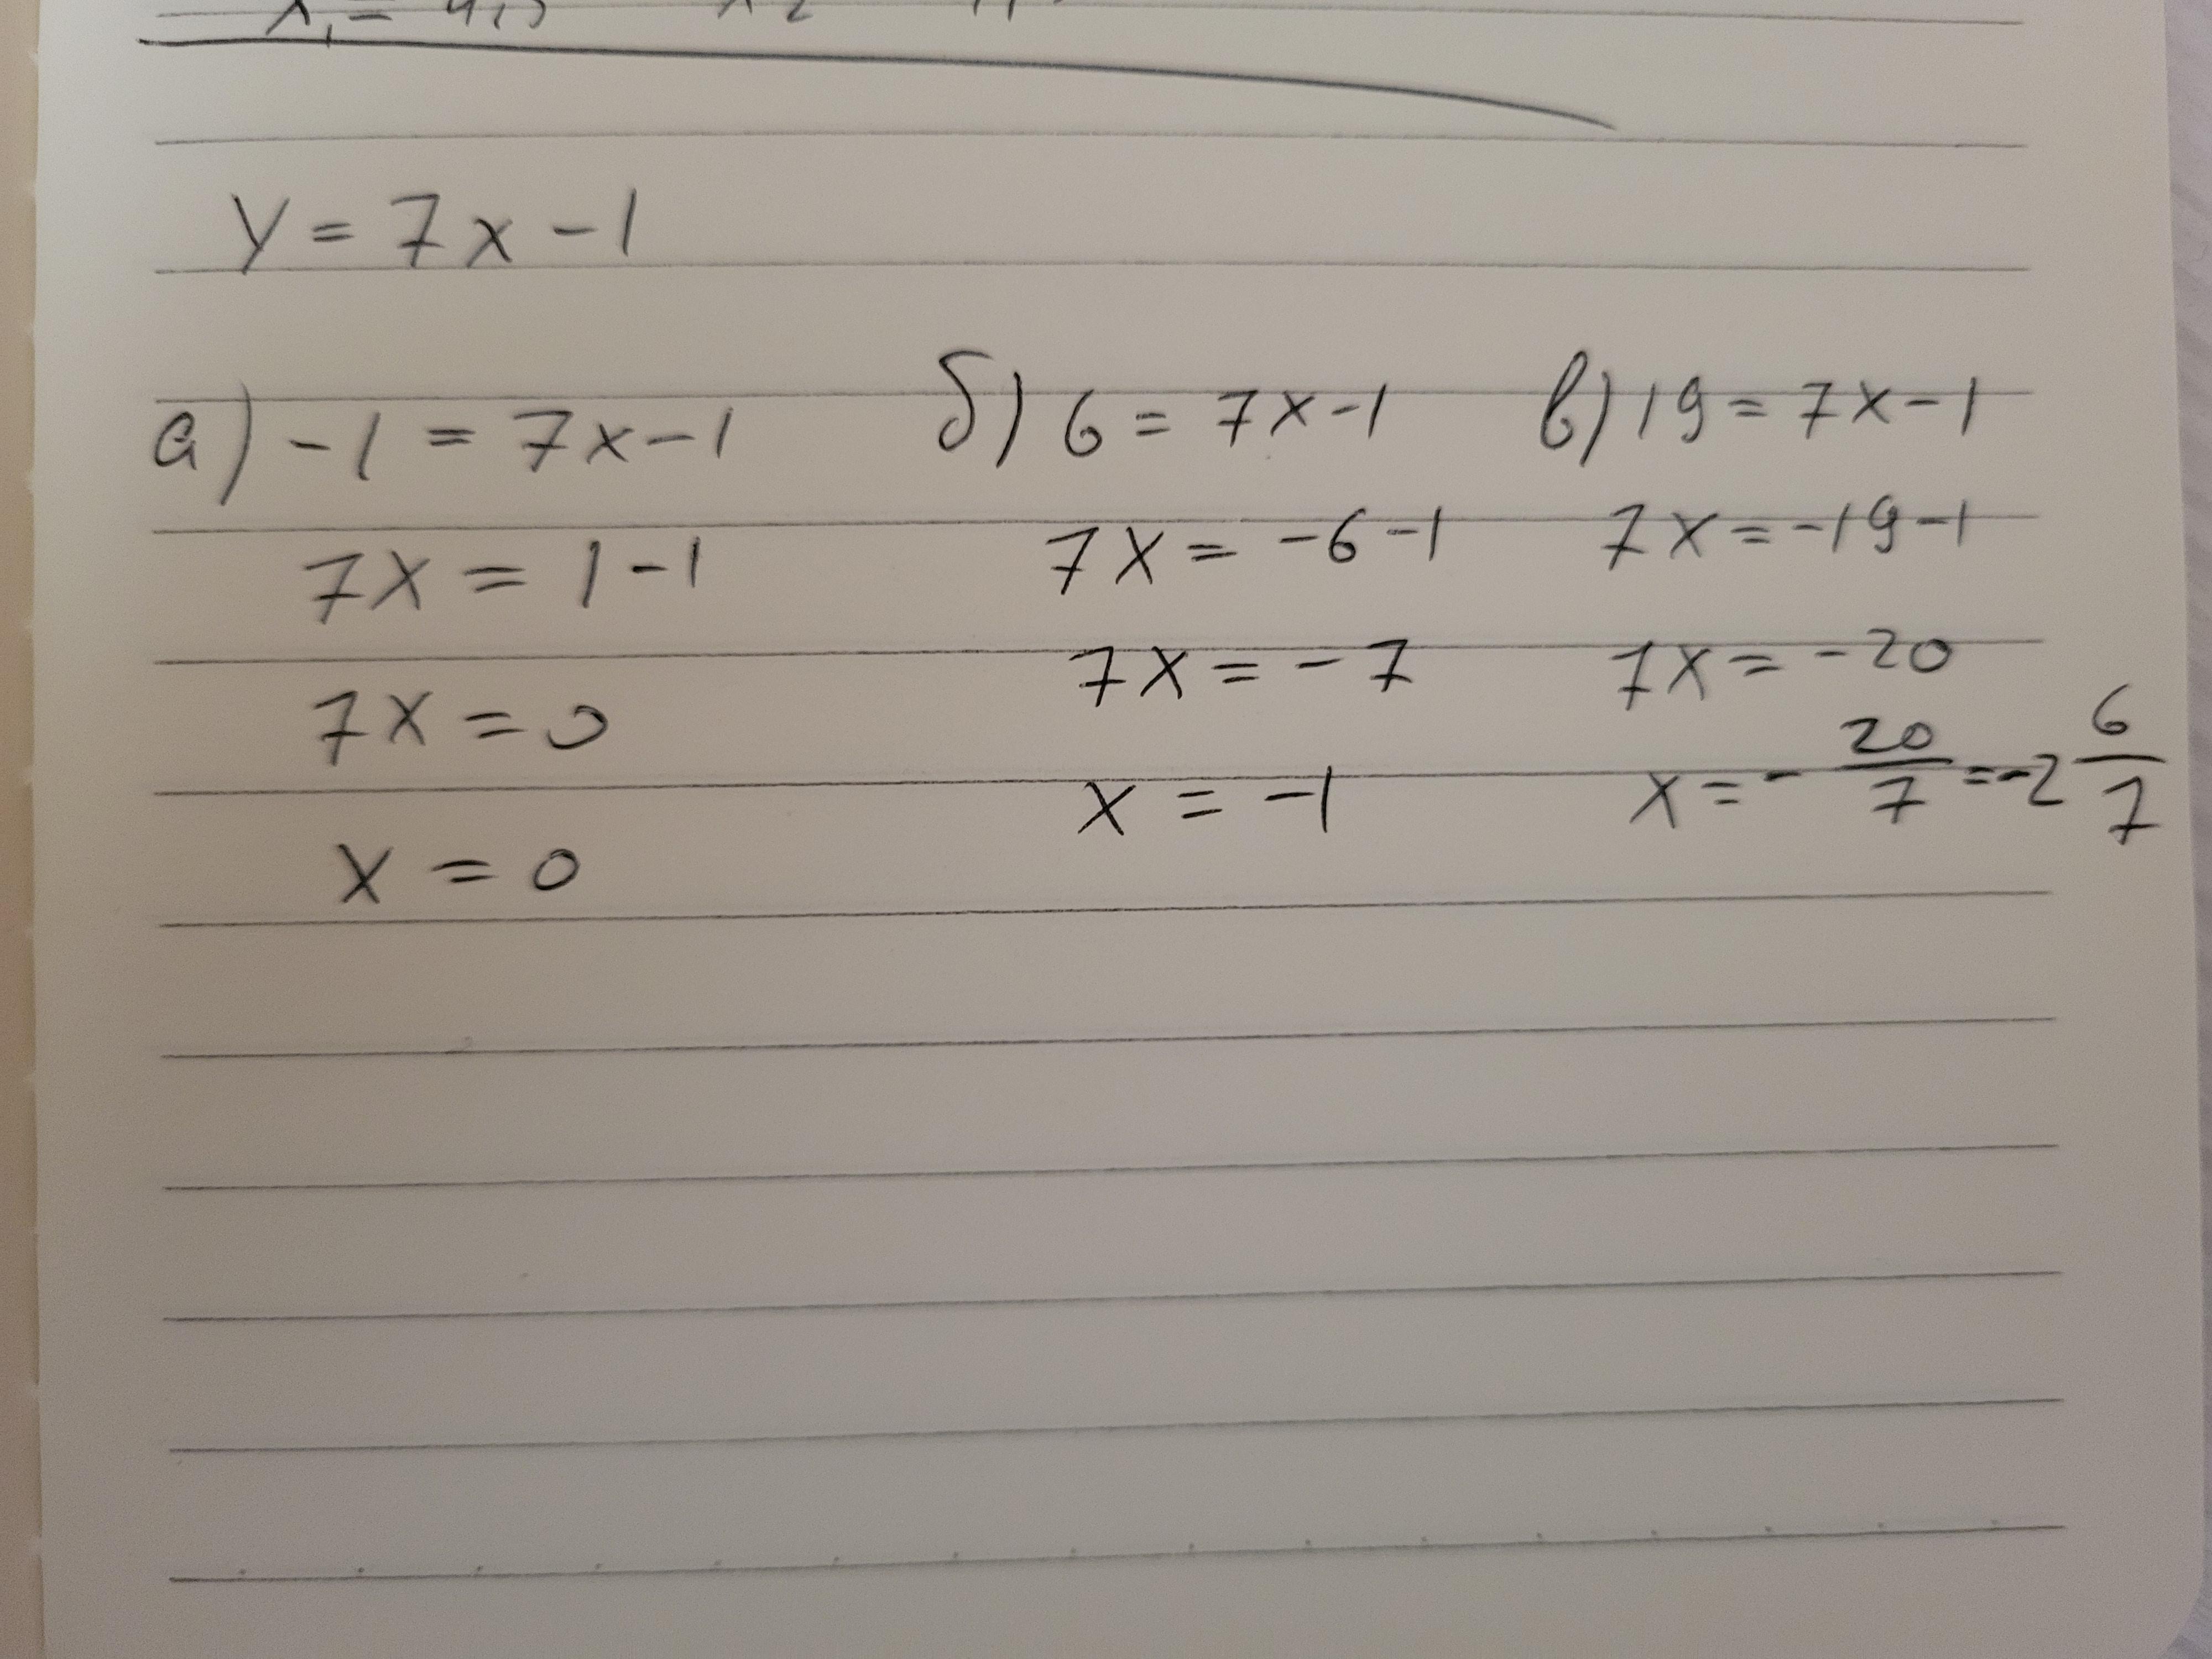 y = 7x - 1
а) -1 = 7x - 1
7x = 1 - 1
7x = 0
x = 0
б) 6 = 7x - 1
7x = -6 - 1
7x = -7
x = -1
в) 19 = 7x - 1
7x = -19 - 1
7x = -20
x = - 20/7 = -2 6/7